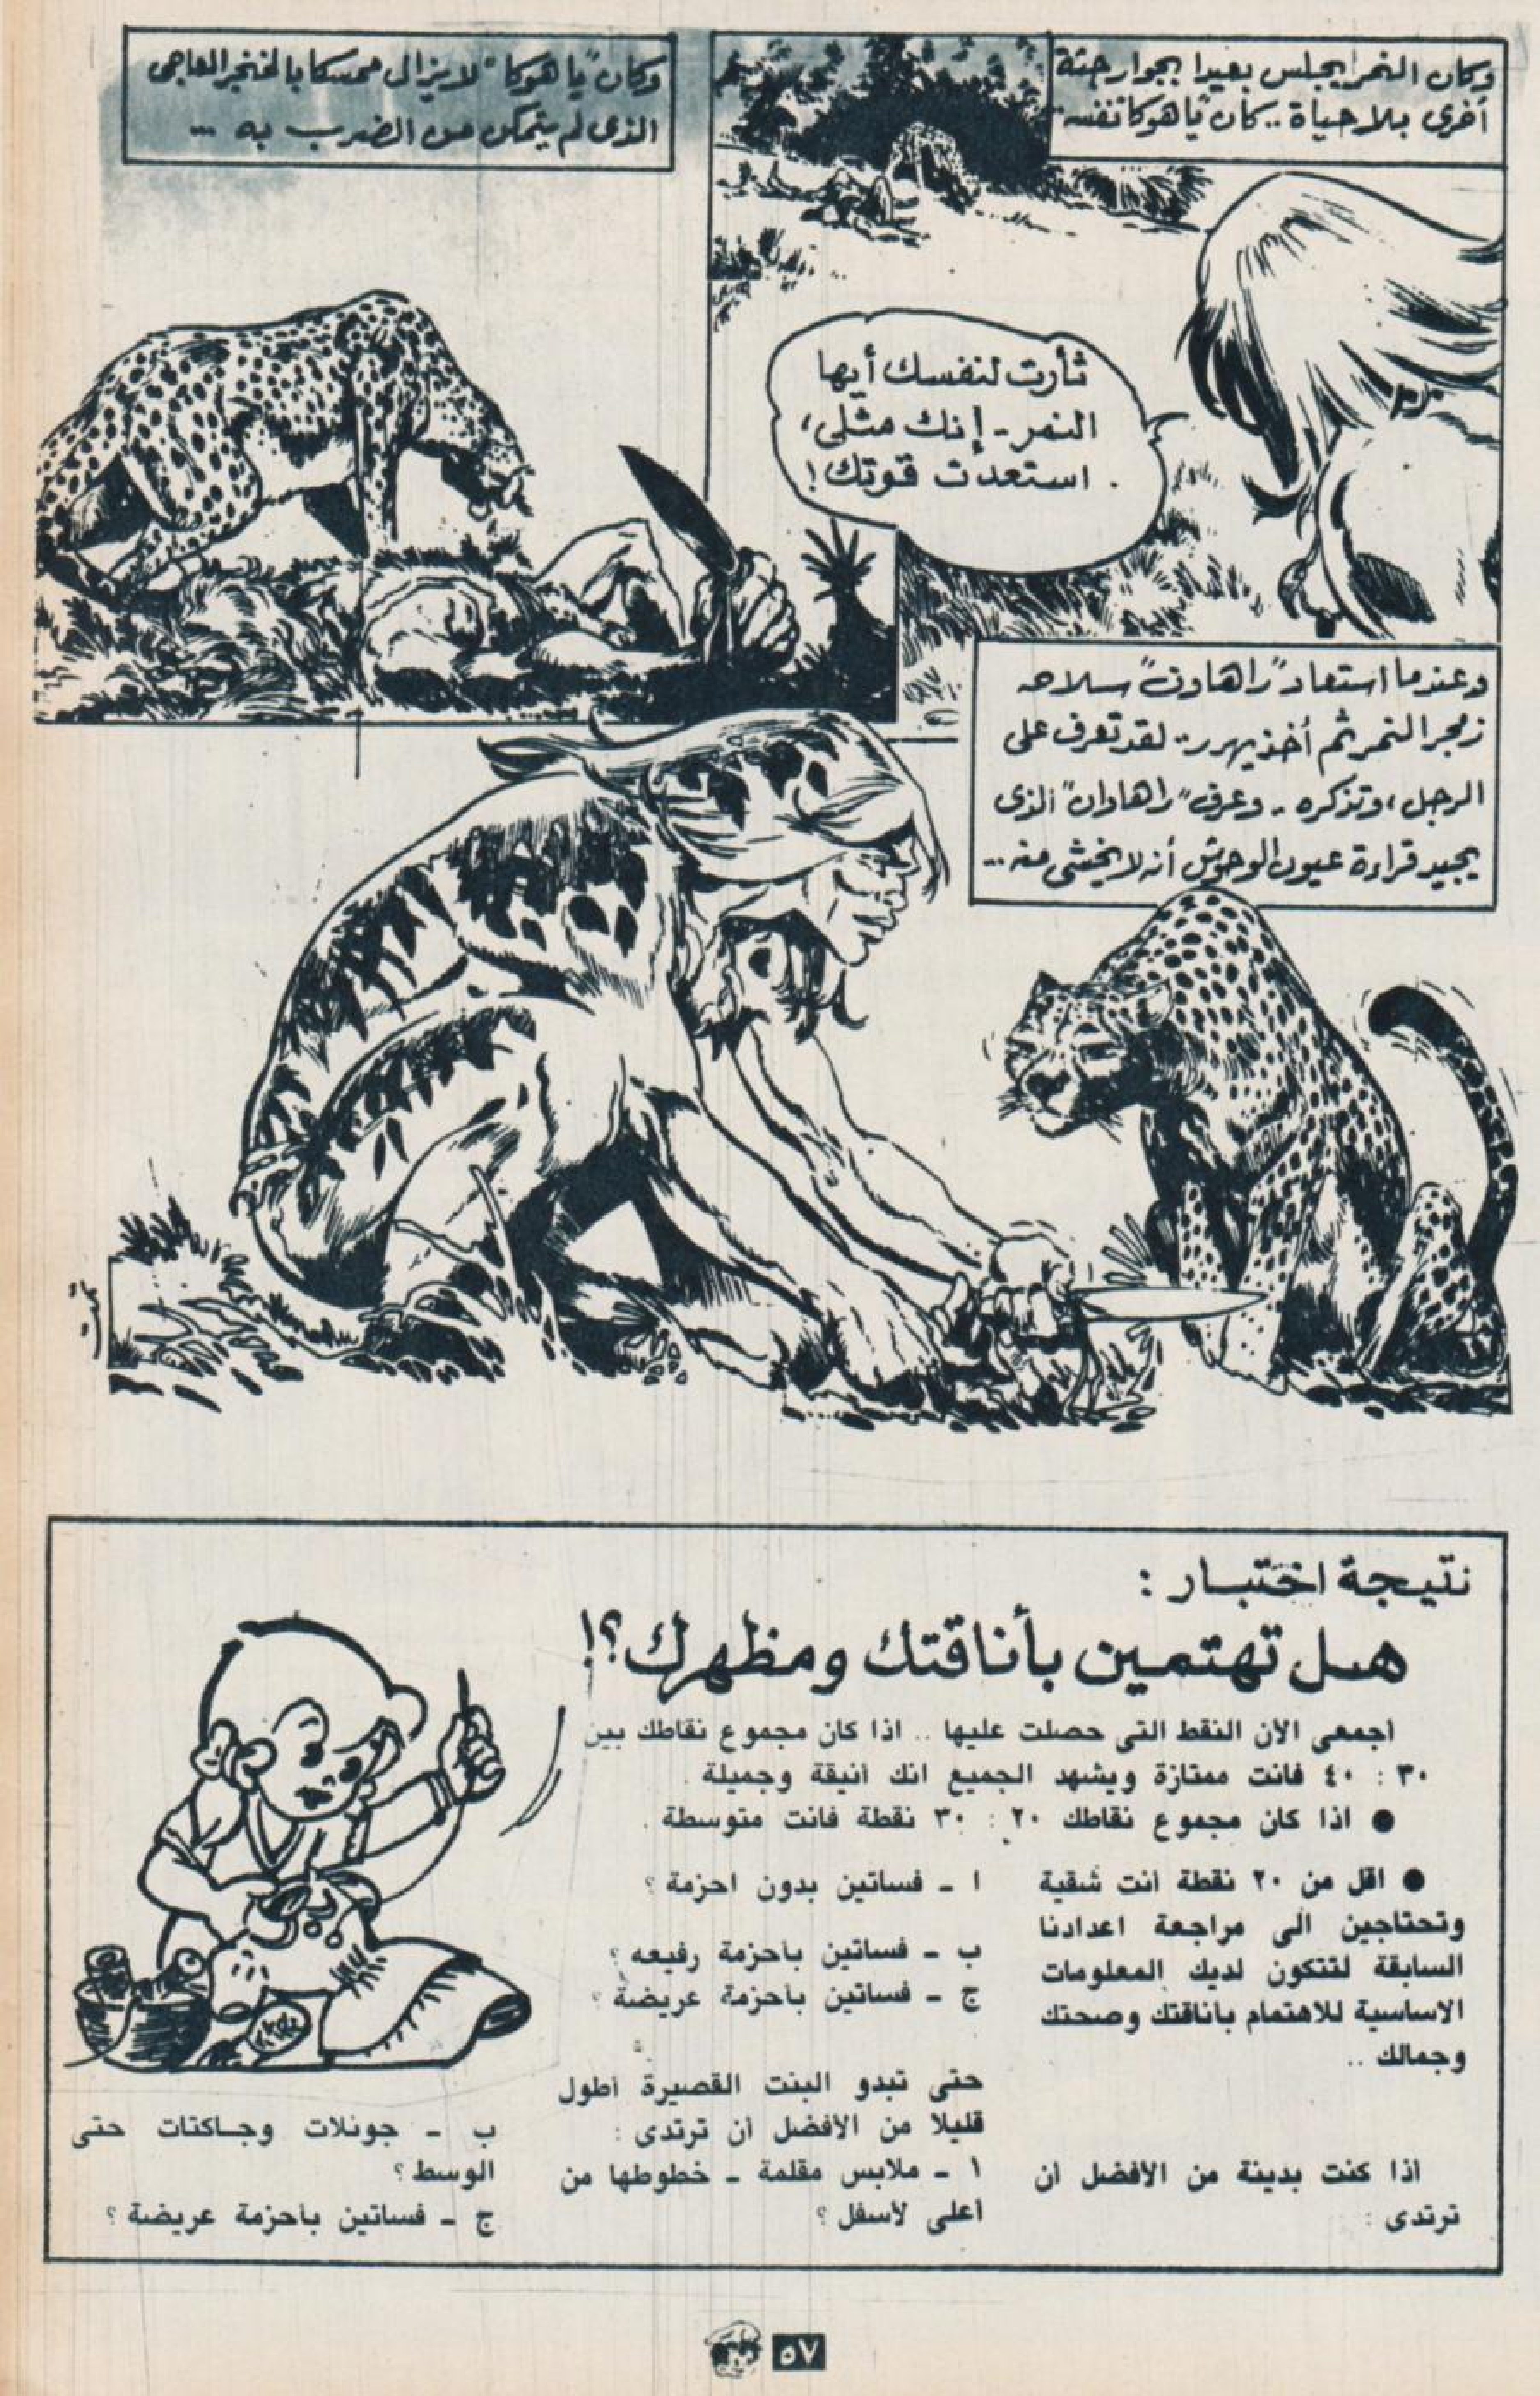 وكان النمر يجلس بعيدا بجوار جثة
أخرى بلا حياة .. كان "ياهوكا" نفسه ..
وكان "ياهوكا" لا يزال ممسكا بالخنجر العاجى
الذى لم يتمكن من الضرب به ...
ثأرت لنفسك أيها
النمر - إنك مثلى،
استعدت قوتك!
وعندما استعاد "راهاون" سلاحه
زمجر النمر ثم أخذ يهرر .. لقد تعرف على
الرجل، وتذكره .. وعرف "راهاوان" الذى
يجيد قراءة عيون الوحوش أنه لا يخشى منه ...
تمت
نتيجة اختبار :
هل تهتمين بأناقتك ومظهرك؟!
اجمعى الآن النقط التى حصلت عليها .. اذا كان مجموع نقاطك بين
٣٠ : ٤٠ فانت ممتازة ويشهد الجميع انك انيقة وجميلة .
● اذا كان مجموع نقاطك ٢٠ : ٣٠ نقطة فانت متوسطة .
● اقل من ٢٠ نقطة انت شقية
وتحتاجين الى مراجعة اعدادنا
السابقة لتتكون لديك المعلومات
الاساسية للاهتمام باناقتك وصحتك
وجمالك ..
اذا كنت بدينة من الأفضل ان
ترتدى :
ا - فساتين بدون احزمة ؟
ب - فساتين باحزمة رفيعه ؟
ج - فساتين باحزمة عريضة ؟
حتى تبدو البنت القصيرة اطول
قليلا من الأفضل ان ترتدى :
ا - ملابس مقلمة - خطوطها من
أعلى لأسفل ؟
ب - جونلات وجاكتات حتى
الوسط ؟
ج - فساتين باحزمة عريضة ؟
٥٧